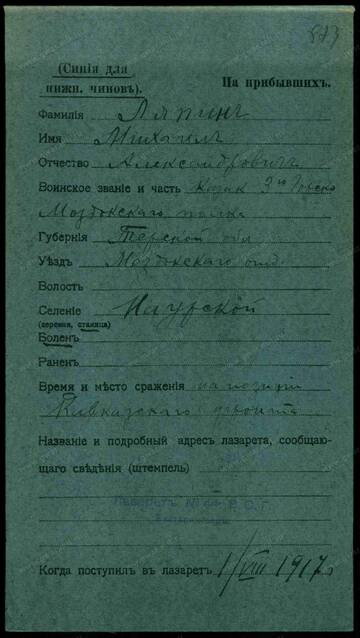 573
(Синія для
нижн. чиновъ).
На прибывшихъ.
Фамилія Ляпинъ
Имя Михаилъ
Отчество Александровичъ
Воинское званіе и часть Козак 3го Горско
Моздокскаго полка
Губернія Терской обл
Уѣздъ Моздокскаго отд.
Волость
Селеніе Наурской
(деревня, станица)
Боленъ
Раненъ
Время и мѣсто сраженія на позиціи
Кавказскаго фронта
Названіе и подробный адресъ лазарета, сообщаю-
щаго свѣдѣнія (штемпель)
Лазаретъ №
Когда поступилъ въ лазаретъ 1/VIII 1917 г